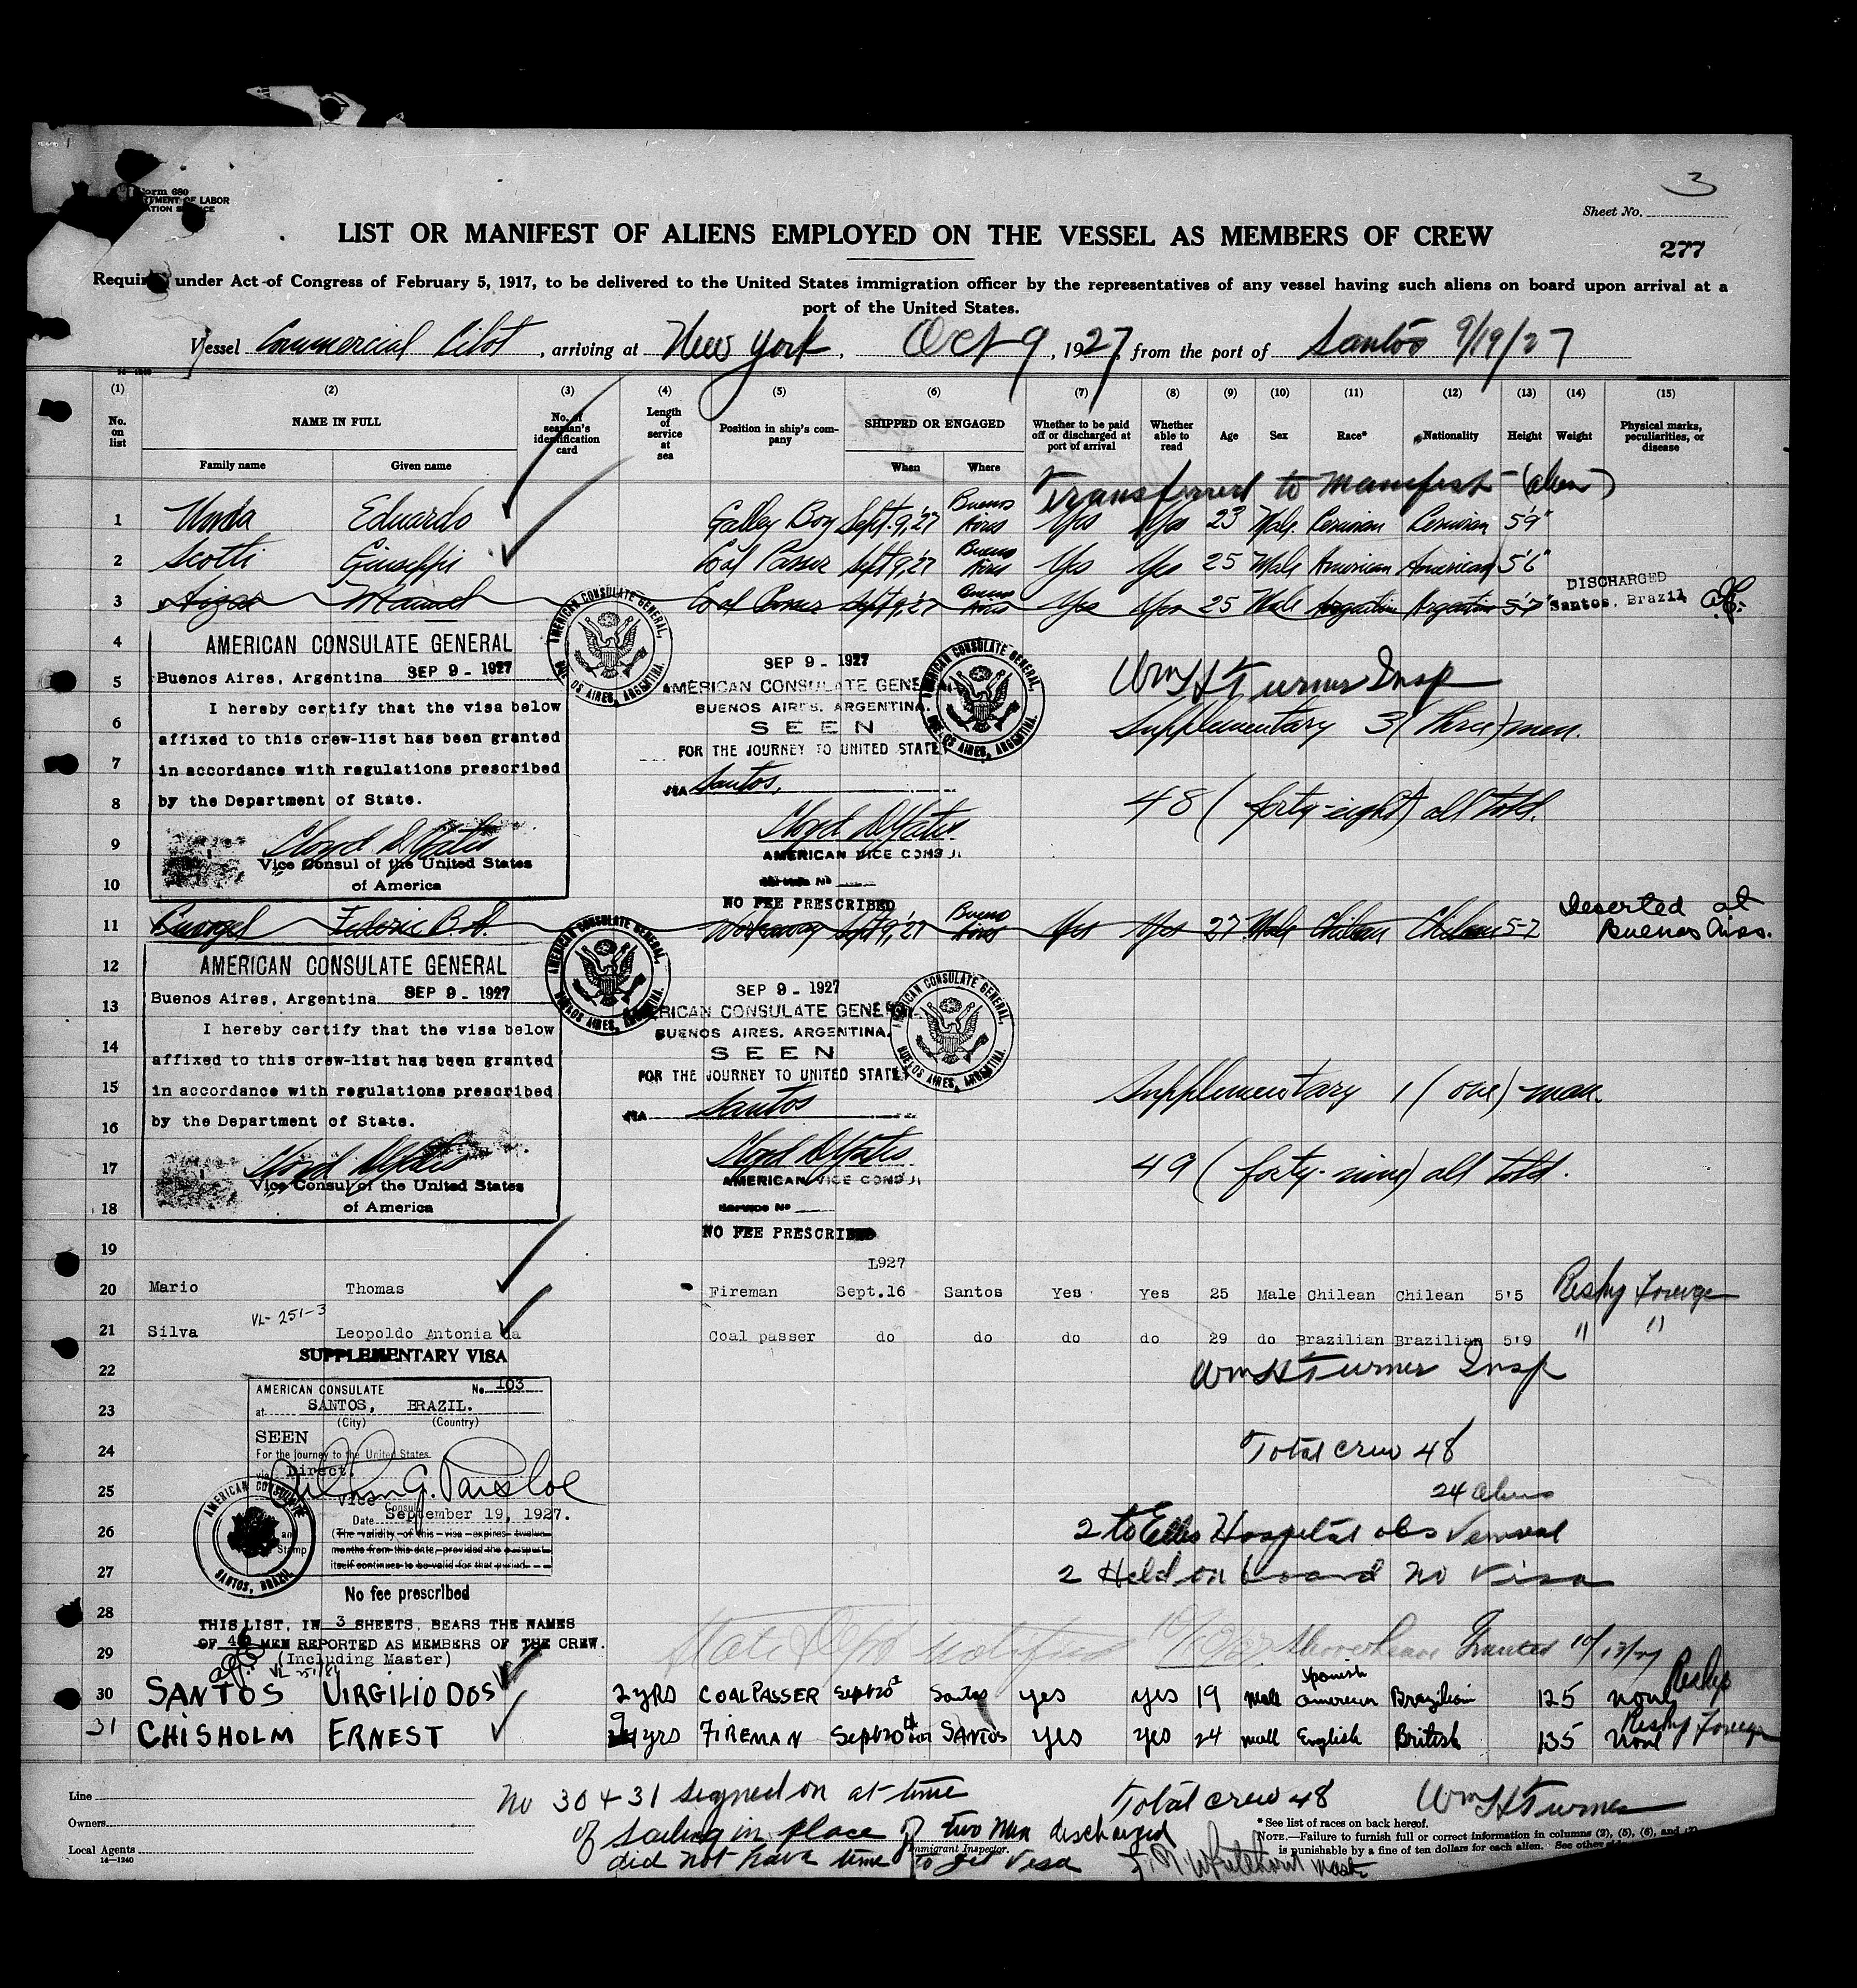 3
Form 680
DEPARTMENT OF LABOR
Sheet No.
LIST OR MANIFEST OF ALIENS EMPLOYED ON THE VESSEL AS MEMBERS OF CREW
277
under Act of Congress of February 5, 1917, to be delivered to the United States immigration officer by the representatives of any vessel having such aliens on board upon arrival at a
port of the United States.
Vessel Commercial Pilot, arriving at New York, Oct 9, 1927, from the port of Santos 9/19/27
(1) (2) (3) (4) (5) (6) (7) (8) (9) (10) (11) (12) (13) (14) (15)
No. on list NAME IN FULL No. of seaman's identification card Length of service at sea Position in ship's company SHIPPED OR ENGAGED Whether to be paid off or discharged at port of arrival Whether able to read Age Sex Race* Nationality Height Weight Physical marks, peculiarities, or disease
Family name Given name When Where
Transferred to manifest (alien)
1 Eduardo Galley Boy Sept. 9, '27 Buenos Aires Yes Yes 23 Male Peruvian Peruvian 5'9"
2 Scotti Giuseppi Coal Passer Sept 9, '27 Buenos Aires Yes Yes 25 Male American American 5'6"
3 Manuel Coal Passer Sept 9, '27 Buenos Aires Yes Yes 25 Male Argentine Argentine 5'7" DISCHARGED Santos, Brazil
4
AMERICAN CONSULATE GENERAL
Buenos Aires, Argentina SEP 9 - 1927
I hereby certify that the visa below
affixed to this crew-list has been granted
in accordance with regulations prescribed
by the Department of State.
Vice Consul of the United States
of America
AMERICAN CONSULATE GENERAL, BUENOS AIRES, ARGENTINA.
SEP 9 - 1927
AMERICAN CONSULATE GENERAL
BUENOS AIRES, ARGENTINA.
SEEN
FOR THE JOURNEY TO UNITED STATES
VIA Santos,
AMERICAN VICE CONSUL
Service No
NO FEE PRESCRIBED
AMERICAN CONSULATE GENERAL, BUENOS AIRES, ARGENTINA.
Wm H Turner Insp
Supplementary 3 (three) men.
48 (forty-eight) all told.
5
6
7
8
9
10
11 Federic B. A. Workaway Sept 9, '27 Buenos Aires Yes Yes 27 Male Chilean Chilean 5-7 Deserted at Buenos Aires.
12
AMERICAN CONSULATE GENERAL
Buenos Aires, Argentina SEP 9 - 1927
I hereby certify that the visa below
affixed to this crew-list has been granted
in accordance with regulations prescribed
by the Department of State.
Vice Consul of the United States
of America
AMERICAN CONSULATE GENERAL, BUENOS AIRES, ARGENTINA.
SEP 9 - 1927
AMERICAN CONSULATE GENERAL
BUENOS AIRES, ARGENTINA.
SEEN
FOR THE JOURNEY TO UNITED STATES
VIA Santos
AMERICAN VICE CONSUL
Service No
NO FEE PRESCRIBED
AMERICAN CONSULATE GENERAL, BUENOS AIRES, ARGENTINA.
Supplementary 1 (one) man.
49 (forty-nine) all told.
13
14
15
16
17
18
19
1927
20 Mario Thomas Fireman Sept.16 Santos Yes Yes 25 Male Chilean Chilean 5'5 Reshp Foreign
VL-251-3
21 Silva Leopoldo Antonia da Coal passer do do do do 29 do Brazilian Brazilian 5'9 " "
SUPPLEMENTARY VISA
22
Wm H Turner Insp
AMERICAN CONSULATE No. 103
at SANTOS, BRAZIL.
(City) (Country)
SEEN
For the journey to the United States
via Direct.
Vice Consul
Date September 19, 1927.
(The validity of this visa expires twelve
months from this date, provided the passport
itself continues to be valid for that period
AMERICAN CONSULATE SANTOS, BRAZIL
Stamp
No fee prescribed
23
24
25
26
27
28
29
Total crew 48
24 aliens
2 to Ellis Hospital obs Venereal
2 Held on board no visa
THIS LIST, IN 3 SHEETS, BEARS THE NAMES
OF 46 MEN REPORTED AS MEMBERS OF THE CREW.
(Including Master)
State Dept notified 10/12/27 Shore leave Granted 10/13/27
30 SANTOS VIRGILIO DOS 2 YRS COAL PASSER Sept 20 Santos yes yes 19 male Spanish american Brazilian 125 none Reshp
31 CHISHOLM ERNEST 9 yrs FIREMAN Sept 20th SANTOS yes yes 24 male English British 135 none Reshp Foreign
No 30 + 31 signed on at time
of sailing in place of two men discharged
did not have time to get visa
Total crew 48 Wm H Turner
Line
Owners
Local Agents
14-1240
Immigrant Inspector.
* See list of races on back hereof.
NOTE.—Failure to furnish full or correct information in columns (2), (5), (6), and (7)
is punishable by a fine of ten dollars for each alien. See other